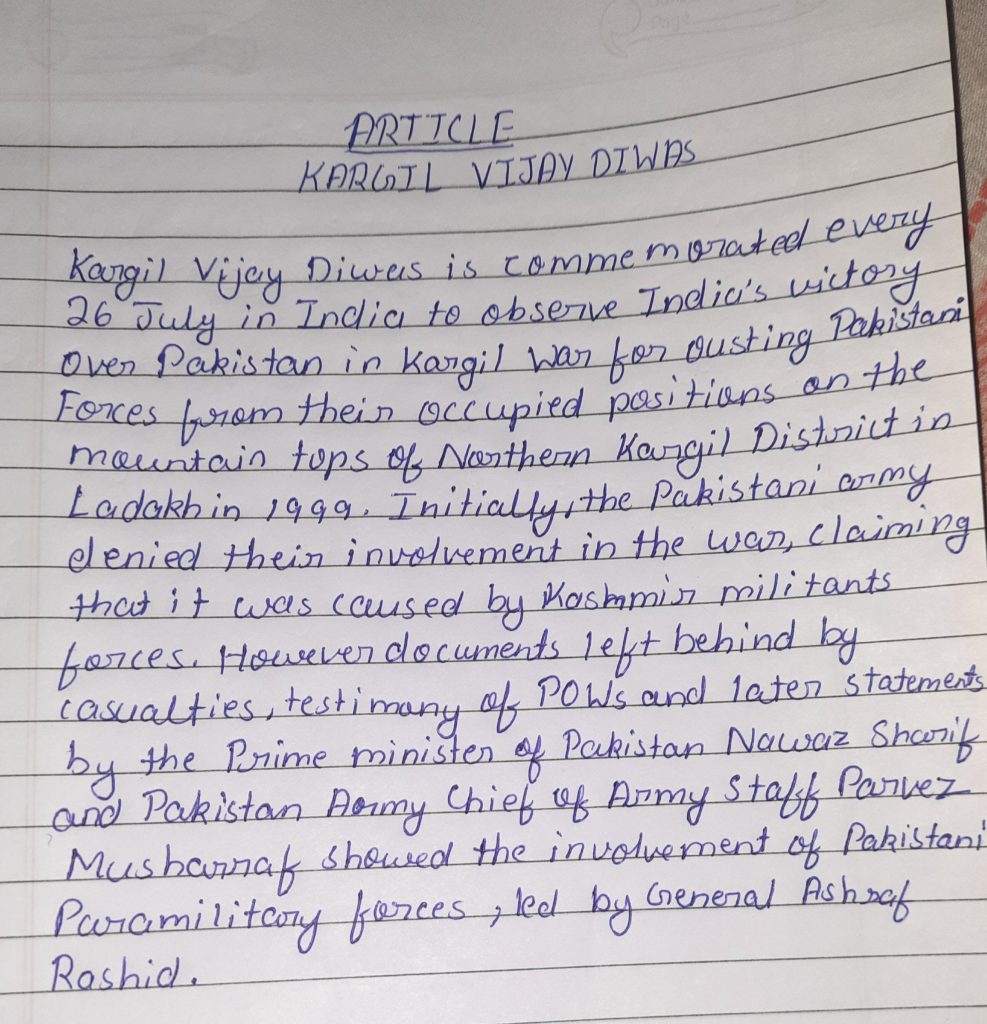 ARTICLE
KARGIL VIJAY DIWAS
Kargil Vijay Diwas is commemorated every
26 July in India to observe India's victory
over Pakistan in Kargil War for ousting Pakistani
Forces from their occupied positions on the
mountain tops of Northern Kargil District in
Ladakh in 1999. Initially, the Pakistani army
denied their involvement in the war, claiming
that it was caused by Kashmir militants
forces. However documents left behind by
casualties, testimony of POWs and later statements
by the Prime minister of Pakistan Nawaz Sharif
and Pakistan Army Chief of Army Staff Parvez
Musharraf showed the involvement of Pakistani
Paramilitary forces, led by General Ashraf
Rashid.